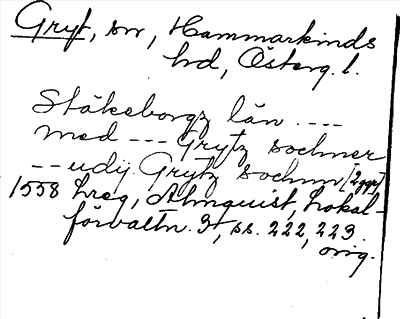 Gryt, sn, Hammarkinds
hd, Österg. l.
Stäkeborgz län ----
med --- Grytz sochner
-- udij Grytz sochnn [2 ggr]
1558 Lreg, Almquist, Lokal-
förvaltn. 3, ss. 222, 223.
orig.